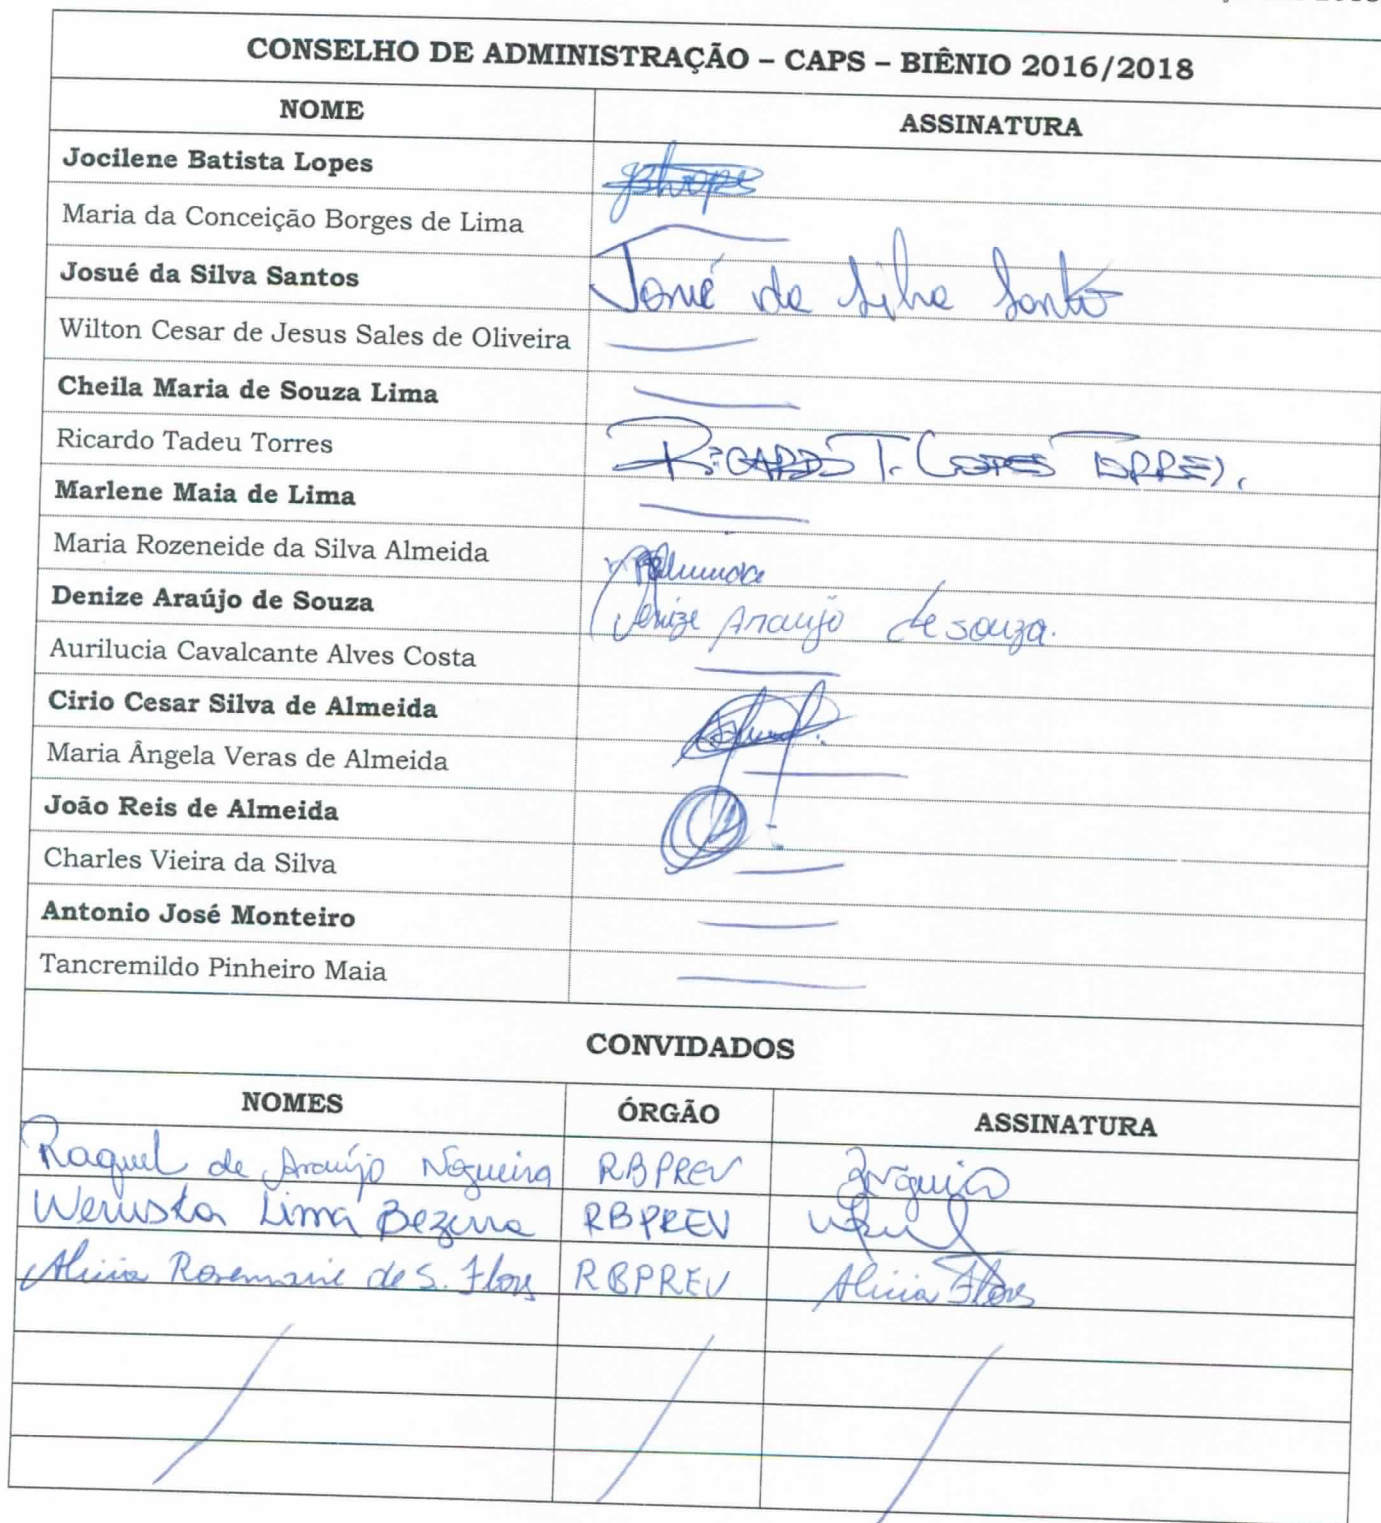 CONSELHO DE ADMINISTRAÇÃO – CAPS – BIÊNIO 2016/2018
NOME ASSINATURA
Jocilene Batista Lopes
Maria da Conceição Borges de Lima
Josué da Silva Santos Josué da Silva Santos
Wilton Cesar de Jesus Sales de Oliveira
Cheila Maria de Souza Lima
Ricardo Tadeu Torres RICARDO T. LOPES TORRES
Marlene Maia de Lima
Maria Rozeneide da Silva Almeida
Denize Araújo de Souza Denize Araujo de souza.
Aurilucia Cavalcante Alves Costa
Cirio Cesar Silva de Almeida
Maria Ângela Veras de Almeida
João Reis de Almeida
Charles Vieira da Silva
Antonio José Monteiro
Tancremildo Pinheiro Maia
CONVIDADOS
NOMES ÓRGÃO ASSINATURA
Raquel de Araújo Nogueira RBPREV
Weruska Lima Bezerra RBPREV
Alicia Rosemarie de S. Flores RBPREV Alicia Flores